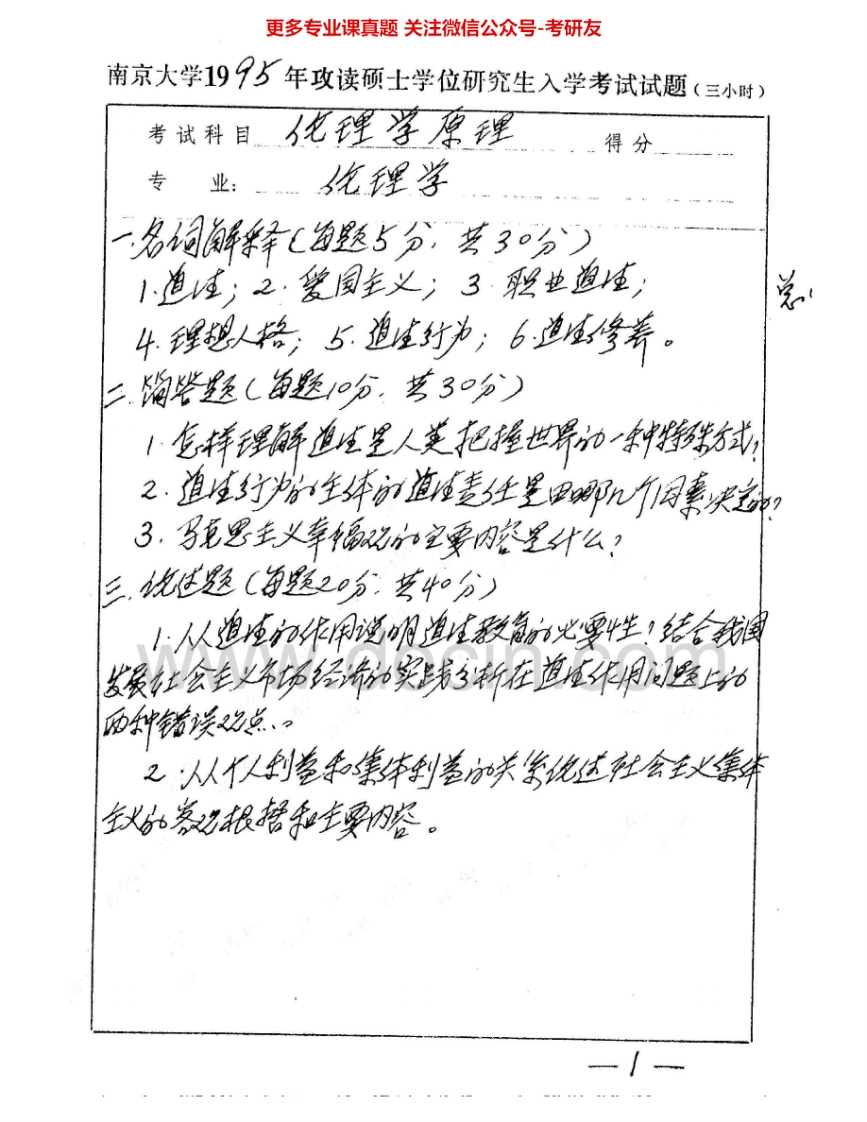 更多专业课真题 关注微信公众号-考研友
南京大学1995年攻读硕士学位研究生入学考试试题(三小时)
考试科目 伦理学原理 得分
专 业: 伦理学
一.名词解释(每题5分.共30分)
1.道德; 2.爱国主义; 3.职业道德;
总
4.理想人格; 5.道德行为; 6.道德修养。
二.简答题(每题10分.共30分)
1.怎样理解道德是人类把握世界的一种特殊方式?
2.道德行为的主体的道德责任是由哪几个因素决定的?
3.马克思主义幸福观的主要内容是什么?
三.论述题(每题20分.共40分)
1.从道德的作用说明道德教育的必要性?结合我国
发展社会主义市场经济的实践分析在道德作用问题上的
两种错误观点.。
2.从个人利益和集体利益的关系论述社会主义集体
主义的客观根据和主要内容。
www.docin.com
—1—